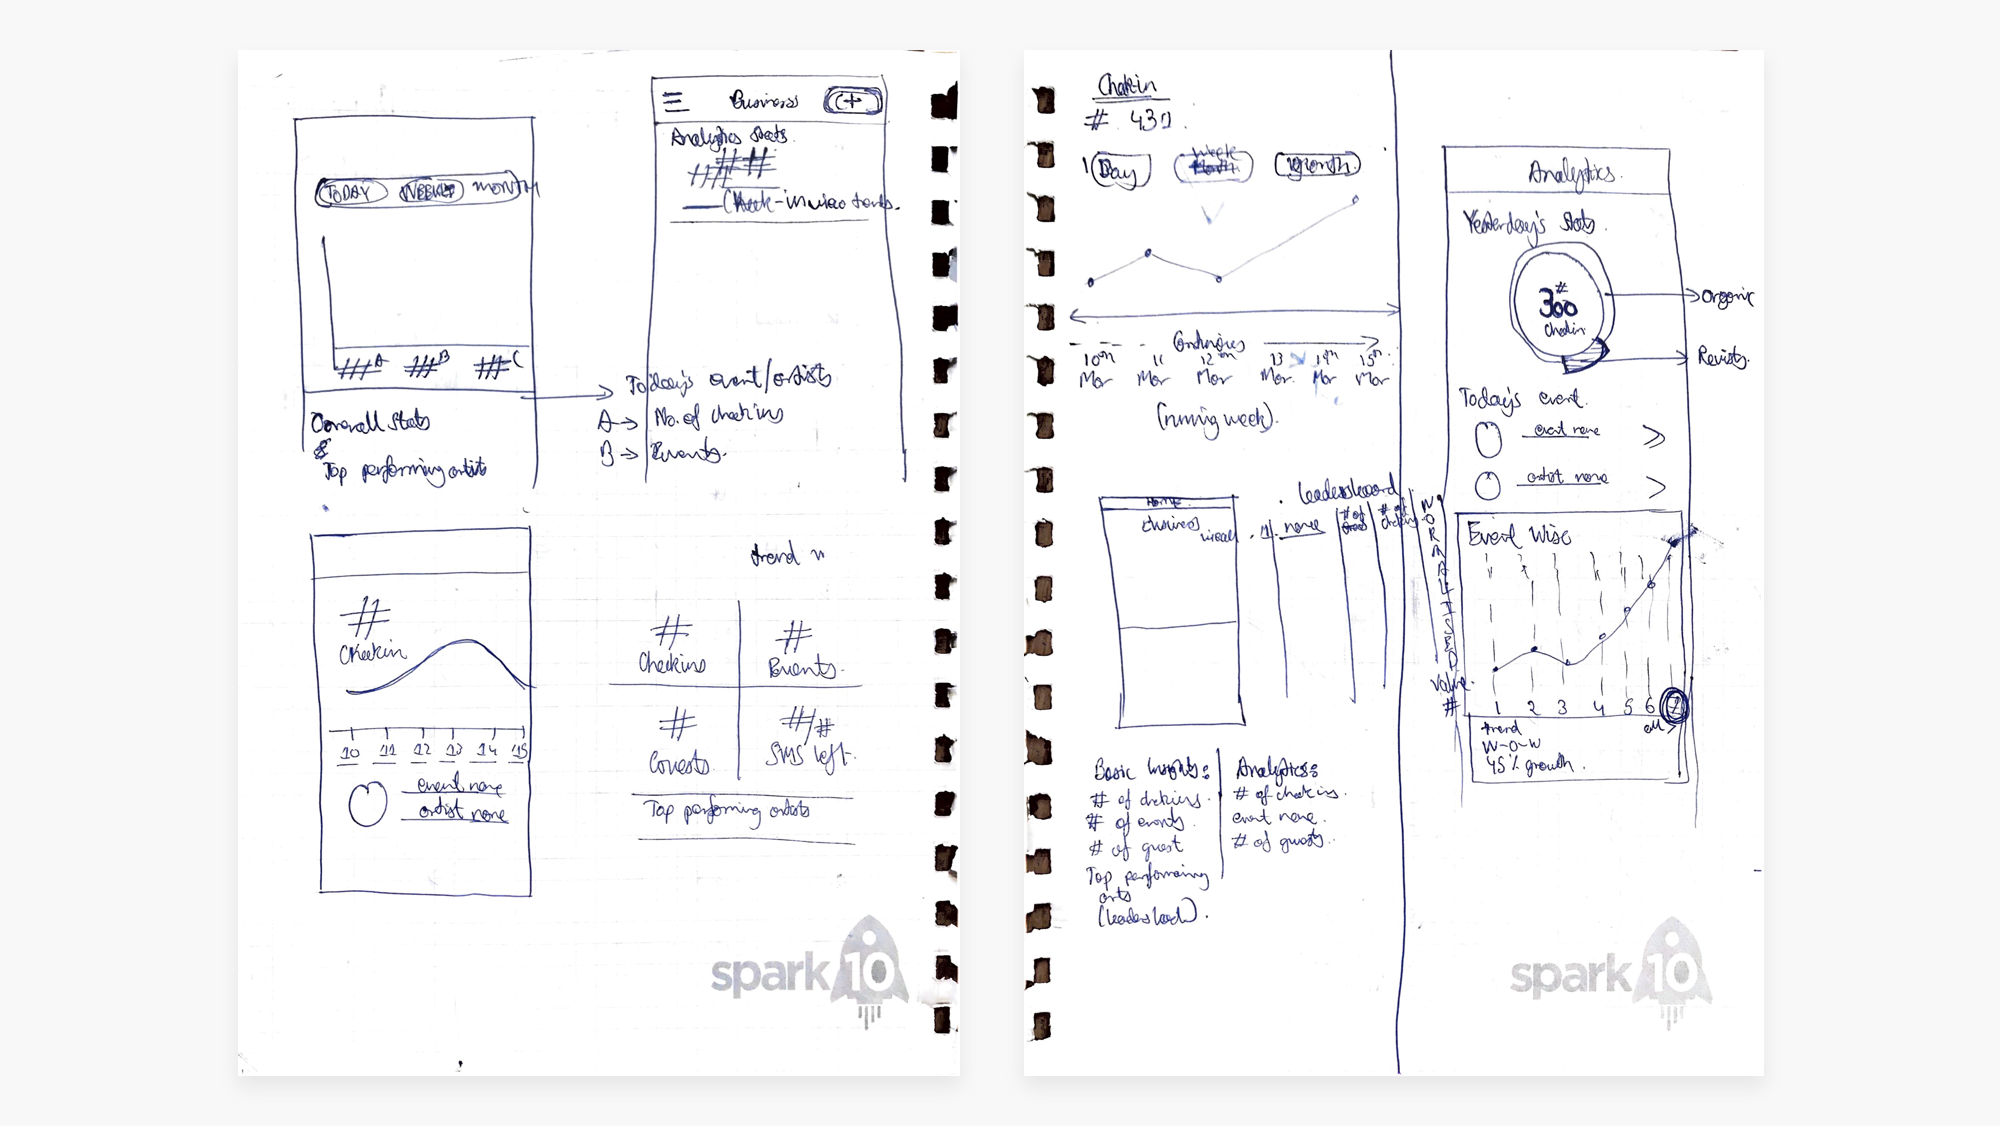 TODAY WEEKLY MONTH
A B C
Overall Stats
&
Top performing artists
Business
Analytics stats
Today's event/artists
A → No. of checkins
B → Events.
#
Checkin
10 11 12 13 14 15
event name
artist name
trend
# Checkins
# Events.
# Guests
#/# SMS left.
Top performing artists
spark10
Checkin
# 430
Day Week Month
10th Mar
11 Mar
12th Mar
13 Mar
14th Mar
15th Mar
(running week).
Home
Business
overall
Leaderboard
#1. name
# of
# of checkins
NORMALISED
Value
#
Basic Insights:
# of checkins.
# of events.
# of guest
Top performing
arts
(leaderboard).
Analytics:
# of checkins.
event name.
# of guests.
Analytics.
Yesterday's Stats.
#
300
Checkin
Organic
Revisits.
Today's event.
event name
artist name
Event Wise
1 2 3 4 5 6 7
trend
W-O-W
45% growth.
all
spark10